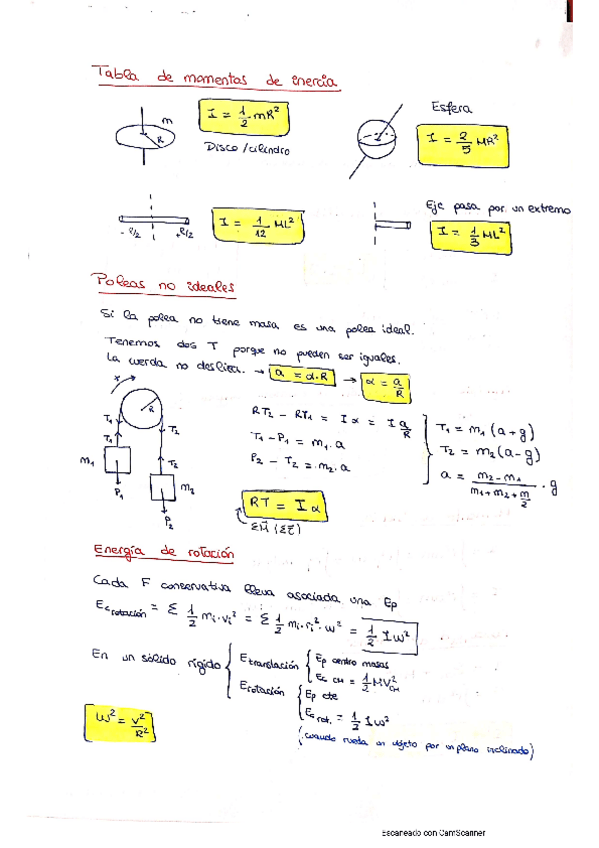 Tabla de momentos de inercia
m
R
I = 1/2 mR²
Disco/cilindro
Esfera
I = 2/5 MR²
- R/2 +R/2
I = 1/12 ML²
Eje pasa por un extremo
I = 1/3 ML²
Poleas no ideales
Si la polea no tiene masa es una polea ideal.
Tenemos dos T porque no pueden ser iguales.
La cuerda no desliza. → a = α·R → α = a/R
R
T1 T2
T1 T2
m1 m2
P1 P2
RT2 - RT1 = Iα = I a/R
T1 - P1 = m1·a
P2 - T2 = m2·a
T1 = m1 (a+g)
T2 = m2 (a-g)
a = m2 - m1 / m1 + m2 + m/2 · g
RT = Iα
ΣM (Στ)
Energía de rotación
Cada F conservativa lleva asociada una Ep
Ec rotación = Σ 1/2 mi·vi² = Σ 1/2 mi·ri²·w² = 1/2 Iw²
En un sólido rígido
Etranslación
Ep centro masas
Ec CM = 1/2 MV²CM
Erotación
Ep cte
Ec rot. = 1/2 Iw²
(cuando rueda un objeto por un plano inclinado)
w² = v²/R²
Escaneado con CamScanner